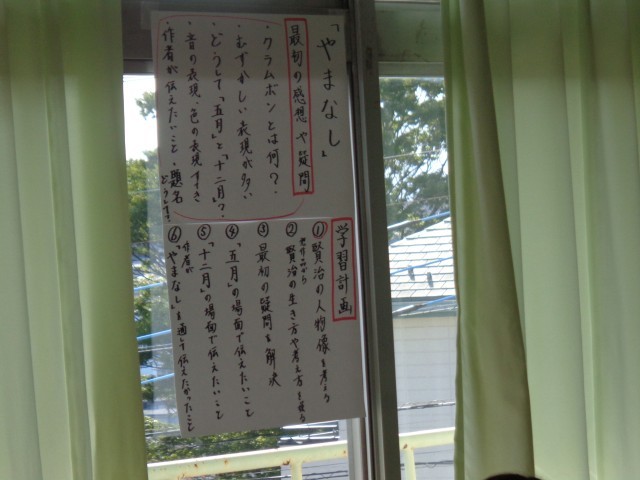 「やまなし」
最初の感想や疑問
・クラムボンとは何?
・むずかしい表現が多い
・どうして「五月」と「十二月」?
・音の表現、色の表現すき
・作者が伝えたいこと・題名どうして?
学習計画
①賢治の人物像を考える
②賢治の生き方や考え方を
③最初の疑問を解決
④「五月」の場面で伝えたいこと
⑤「十二月」の場面で伝えたいこと
⑥作者が「やまなし」を通して伝えたかったこと